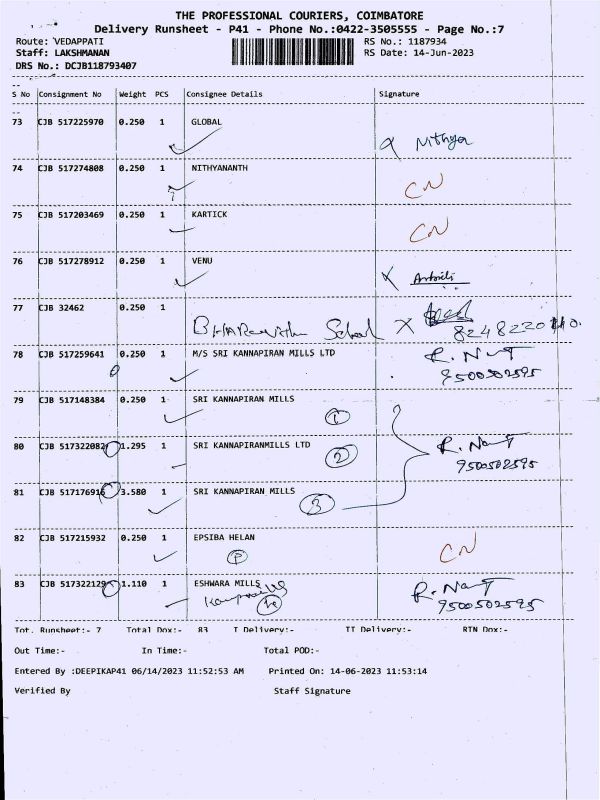 THE PROFESSIONAL COURIERS, COIMBATORE
Delivery Runsheet - P41 - Phone No.:0422-3505555 - Page No.:7
Route: VEDAPPATI RS No.: 1187934
Staff: LAKSHMANAN RS Date: 14-Jun-2023
DRS No.: DCJB118793407
S No Consignment No Weight PCS Consignee Details Signature
73 CJB 517225970 0.250 1 GLOBAL
Nithya
74 CJB 517274808 0.250 1 NITHYANANTH
CN
75 CJB 517203469 0.250 1 KARTICK
CN
76 CJB 517278912 0.250 1 VENU
77 CJB 32462 0.250 1
School
78 CJB 517259641 0.250 1 M/S SRI KANNAPIRAN MILLS LTD
9500502595
79 CJB 517148384 0.250 1 SRI KANNAPIRAN MILLS
1
80 CJB 517322082 1.295 1 SRI KANNAPIRANMILLS LTD
2
9500502595
81 CJB 517176916 3.580 1 SRI KANNAPIRAN MILLS
3
82 CJB 517215932 0.250 1 EPSIBA HELAN
P CN
83 CJB 517322129 1.110 1 ESHWARA MILLS
9500502595
Tot. Runsheet:- 7 Total Dox:- 83 I Delivery:- II Delivery:- RTN Dox:-
Out Time:- In Time:- Total POD:-
Entered By :DEEPIKAP41 06/14/2023 11:52:53 AM Printed On: 14-06-2023 11:53:14
Verified By Staff Signature